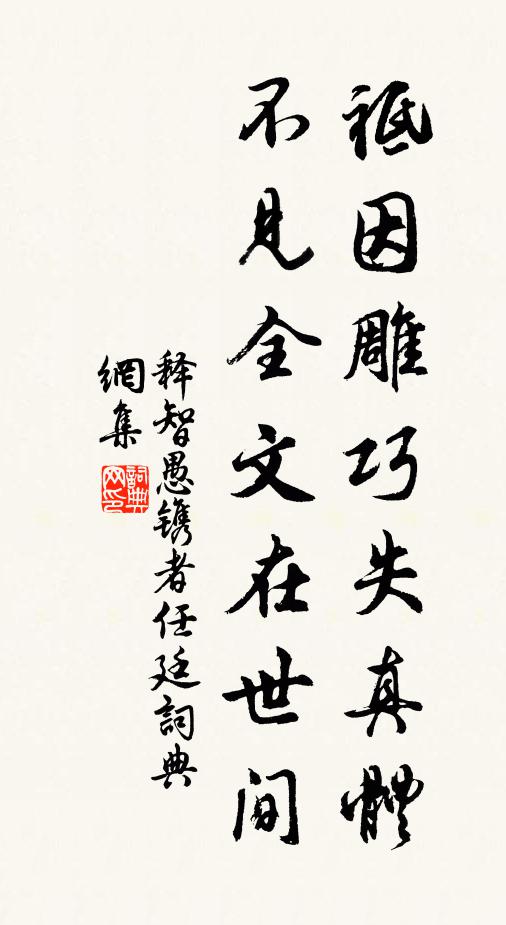 祗因雕巧失真體
不見全文在世間
释智愚镌者任廷詞典
網集
詞典網印